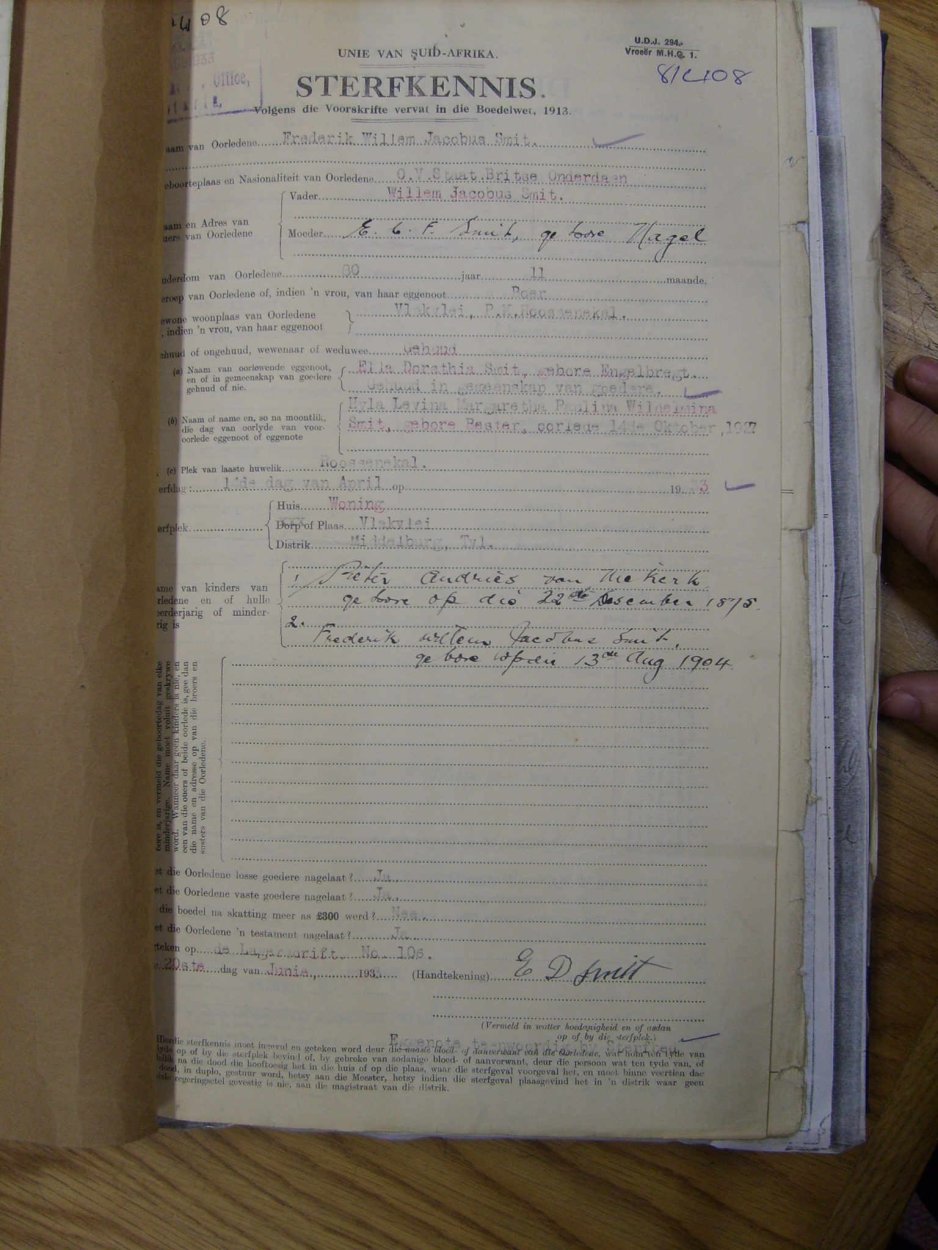 408
Office,
UNIE VAN SUID-AFRIKA.
U.D.J. 294.
Vroeër M.H.G. 1.
81408
STERFKENNIS.
Volgens die Voorskrifte vervat in die Boedelwet, 1913.
aam van Oorledene Frederik Willem Jacobus Smit.
eboorteplaas en Nasionaliteit van Oorledene O.V.Staat.Britse Onderdaan
Vader Willem Jacobus Smit.
aam en Adres van
ers van Oorledene
Moeder E. C. F. Smit, gebore Nagel
uderdom van Oorledene 60 jaar 11 maande.
eroep van Oorledene of, indien 'n vrou, van haar eggenoot Boer
ewone woonplaas van Oorledene
, indien 'n vrou, van haar eggenoot
Vlakvlei, P.K.Roossenekal.
ehuud of ongehuud, wewenaar of weduwee Gehuud
(a) Naam van oorlewende eggenoot,
en of in gemeenskap van goedere
gehuud of nie.
Ella Dorathia Smit, gebore Engelbregt.
Gehuud in gemeenskap van goedere.
(b) Naam of name en, so na moontlik,
die dag van oorlyde van voor-
oorlede eggenoot of eggenote
Hyla Levina Margaretha Paulina Wilhelmina
Smit, gebore Bester, oorlede 14de Oktober, 1927
(c) Plek van laaste huwelik Roossenekal.
erfdag: 14de dag van April op 19 33
erfplek
Huis Woning
XXX
Dorp of Plaas Vlakvlei
Distrik Middelburg, Tvl.
ame van kinders van
rledene en of hulle
eerderjarig of minder-
rig is
1. Pieter Andries van Niekerk
gebore op die 22de Desember 1875.
2.
Frederik Willem Jacobus Smit,
gebore op die 13de Aug 1904.
eerd is, en vermeld die geboortedag van elke
minderjarige. Name moet voluit geskrywe
word. Wanneer daar geen kinders is nie, en
een van die ouers of beide oorlede is, gee dan
die name en adresse op van die broers en
susters van die Oorledene.
et die Oorledene losse goedere nagelaat? Ja.
et die Oorledene vaste goedere nagelaat? Ja.
die boedel na skatting meer as £300 werd? Nee.
et die Oorledene 'n testament nagelaat? Ja.
teken op de Lagersdrift. No. 106.
20ste dag van Junie, 193 (Handtekening) E D Smit
(Vermeld in watter hoedanigheid en of aldan
op of by die sterfplek.)
Eggenote teenwoordig by sterfplek.
Hierdie sterfkennis moet ingevul en geteken word deur die naaste bloed- of aanverwant van die Oorledene, wat hom ten tyde van
tyde op of by die sterfplek bevind of, by gebreke van sodanige bloed- of aanverwant, deur die persoon wat ten tyde van, of
lik na die dood die hooftoesig het in die huis of op die plaas, waar die sterfgeval voorgeval het, en moet binne veertien dae
dood, in duplo, gestuur word, hetsy aan die Meester, hetsy indien die sterfgeval plaasgevind het in 'n distrik waar geen
regeringsetel gevestig is nie, aan die magistraat van die distrik.